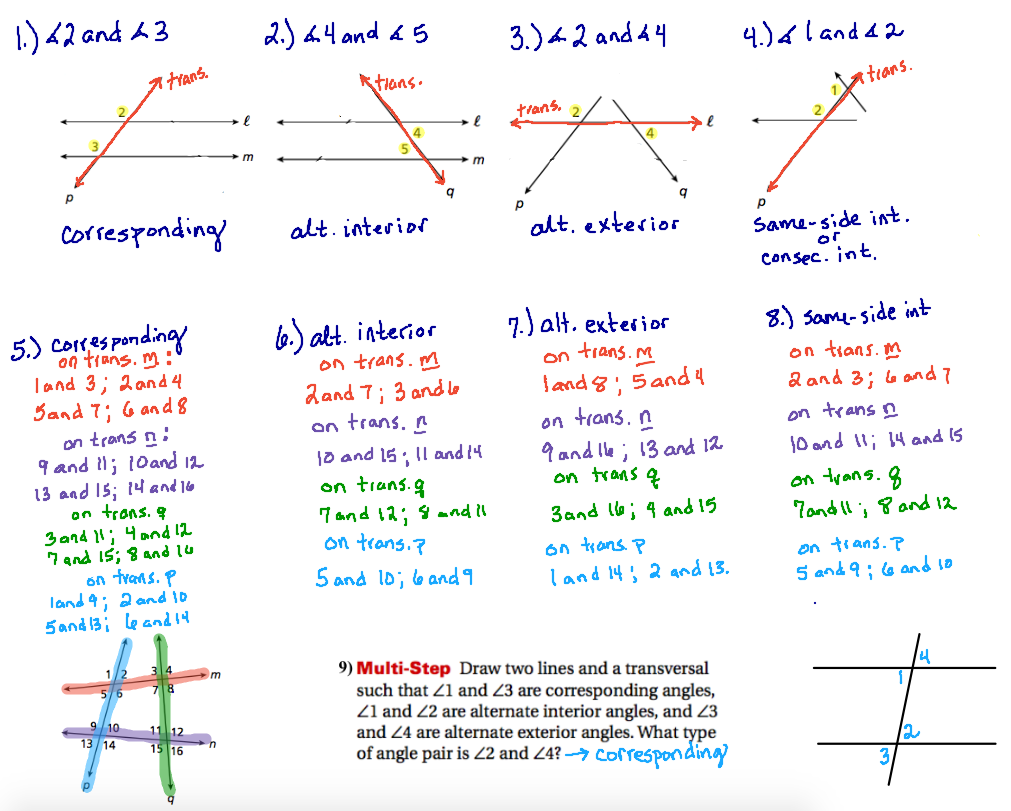 1.) ∡2 and ∡3
trans.
2
l
3
m
p
corresponding
2.) ∡4 and ∡5
trans.
l
4
5
m
q
alt. interior
3.) ∡2 and ∡4
trans.
2
l
4
p
q
alt. exterior
4.) ∡1 and ∡2
trans.
1
2
p
Same-side int.
or
consec. int.
5.) corresponding
on trans. m:
1 and 3; 2 and 4
5 and 7; 6 and 8
on trans n:
9 and 11; 10 and 12
13 and 15; 14 and 16
on trans. q
3 and 11; 4 and 12
7 and 15; 8 and 16
on trans. p
1 and 9; 2 and 10
5 and 13; 6 and 14
6.) alt. interior
on trans. m
2 and 7; 3 and 6
on trans. n
10 and 15; 11 and 14
on trans. q
7 and 12; 8 and 11
on trans. p
5 and 10; 6 and 9
7.) alt. exterior
on trans. m
1 and 8; 5 and 4
on trans. n
9 and 16; 13 and 12
on trans q
3 and 16; 4 and 15
on trans. p
1 and 14; 2 and 13.
8.) same-side int
on trans. m
2 and 3; 6 and 7
on trans n
10 and 11; 14 and 15
on trans. q
7 and 11; 8 and 12
on trans. p
5 and 9; 6 and 10
1 2 3 4 m
5 6 7 8
9 10 11 12
13 14 15 16 n
p
q
9) Multi-Step Draw two lines and a transversal
such that ∠1 and ∠3 are corresponding angles,
∠1 and ∠2 are alternate interior angles, and ∠3
and ∠4 are alternate exterior angles. What type
of angle pair is ∠2 and ∠4? → corresponding
4
1
2
3